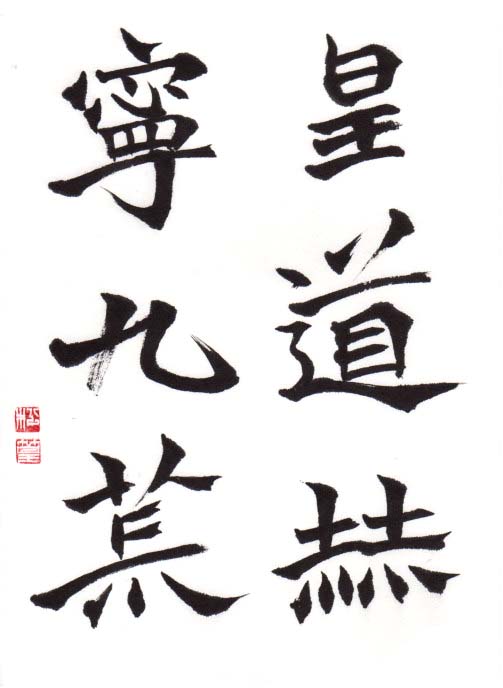 皇道赫
寧九荒